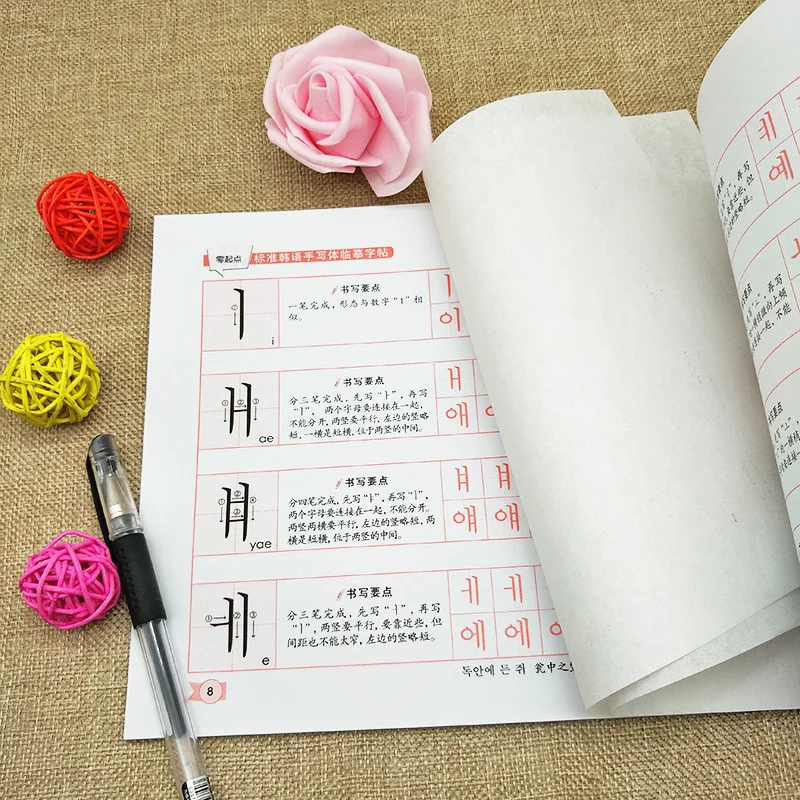 零起点 标准韩语手写体临摹字帖
ㅣ
①
i
书写要点
一笔完成，形态与数字“1”相
似。
이
ㅐ
① ② ③
ae
书写要点
分三笔完成，先写“ㅏ”，再写
“ㅣ”，两个字母要连接在一起，
不能分开，两竖要平行，左边的竖略
短，一横是短横，位于两竖的中间。
ㅐ
애
ㅒ
① ② ③ ④
yae
书写要点
分四笔完成，先写“ㅑ”，再写“ㅣ”，
两个字母要连接在一起，不能分开。
两竖两横要平行，左边的竖略短，两
横是短横，位于两竖的中间。
ㅒ ㅒ
얘 얘
ㅔ
① ② ③
e
书写要点
分三笔完成，先写“ㅓ”，再写
“ㅣ”，两竖要平行，要靠近些，但
间距也不能太窄，左边的竖略短。
ㅔ ㅔ
에 에
독안에 든 쥐 瓮中之
8
ㅖ
예